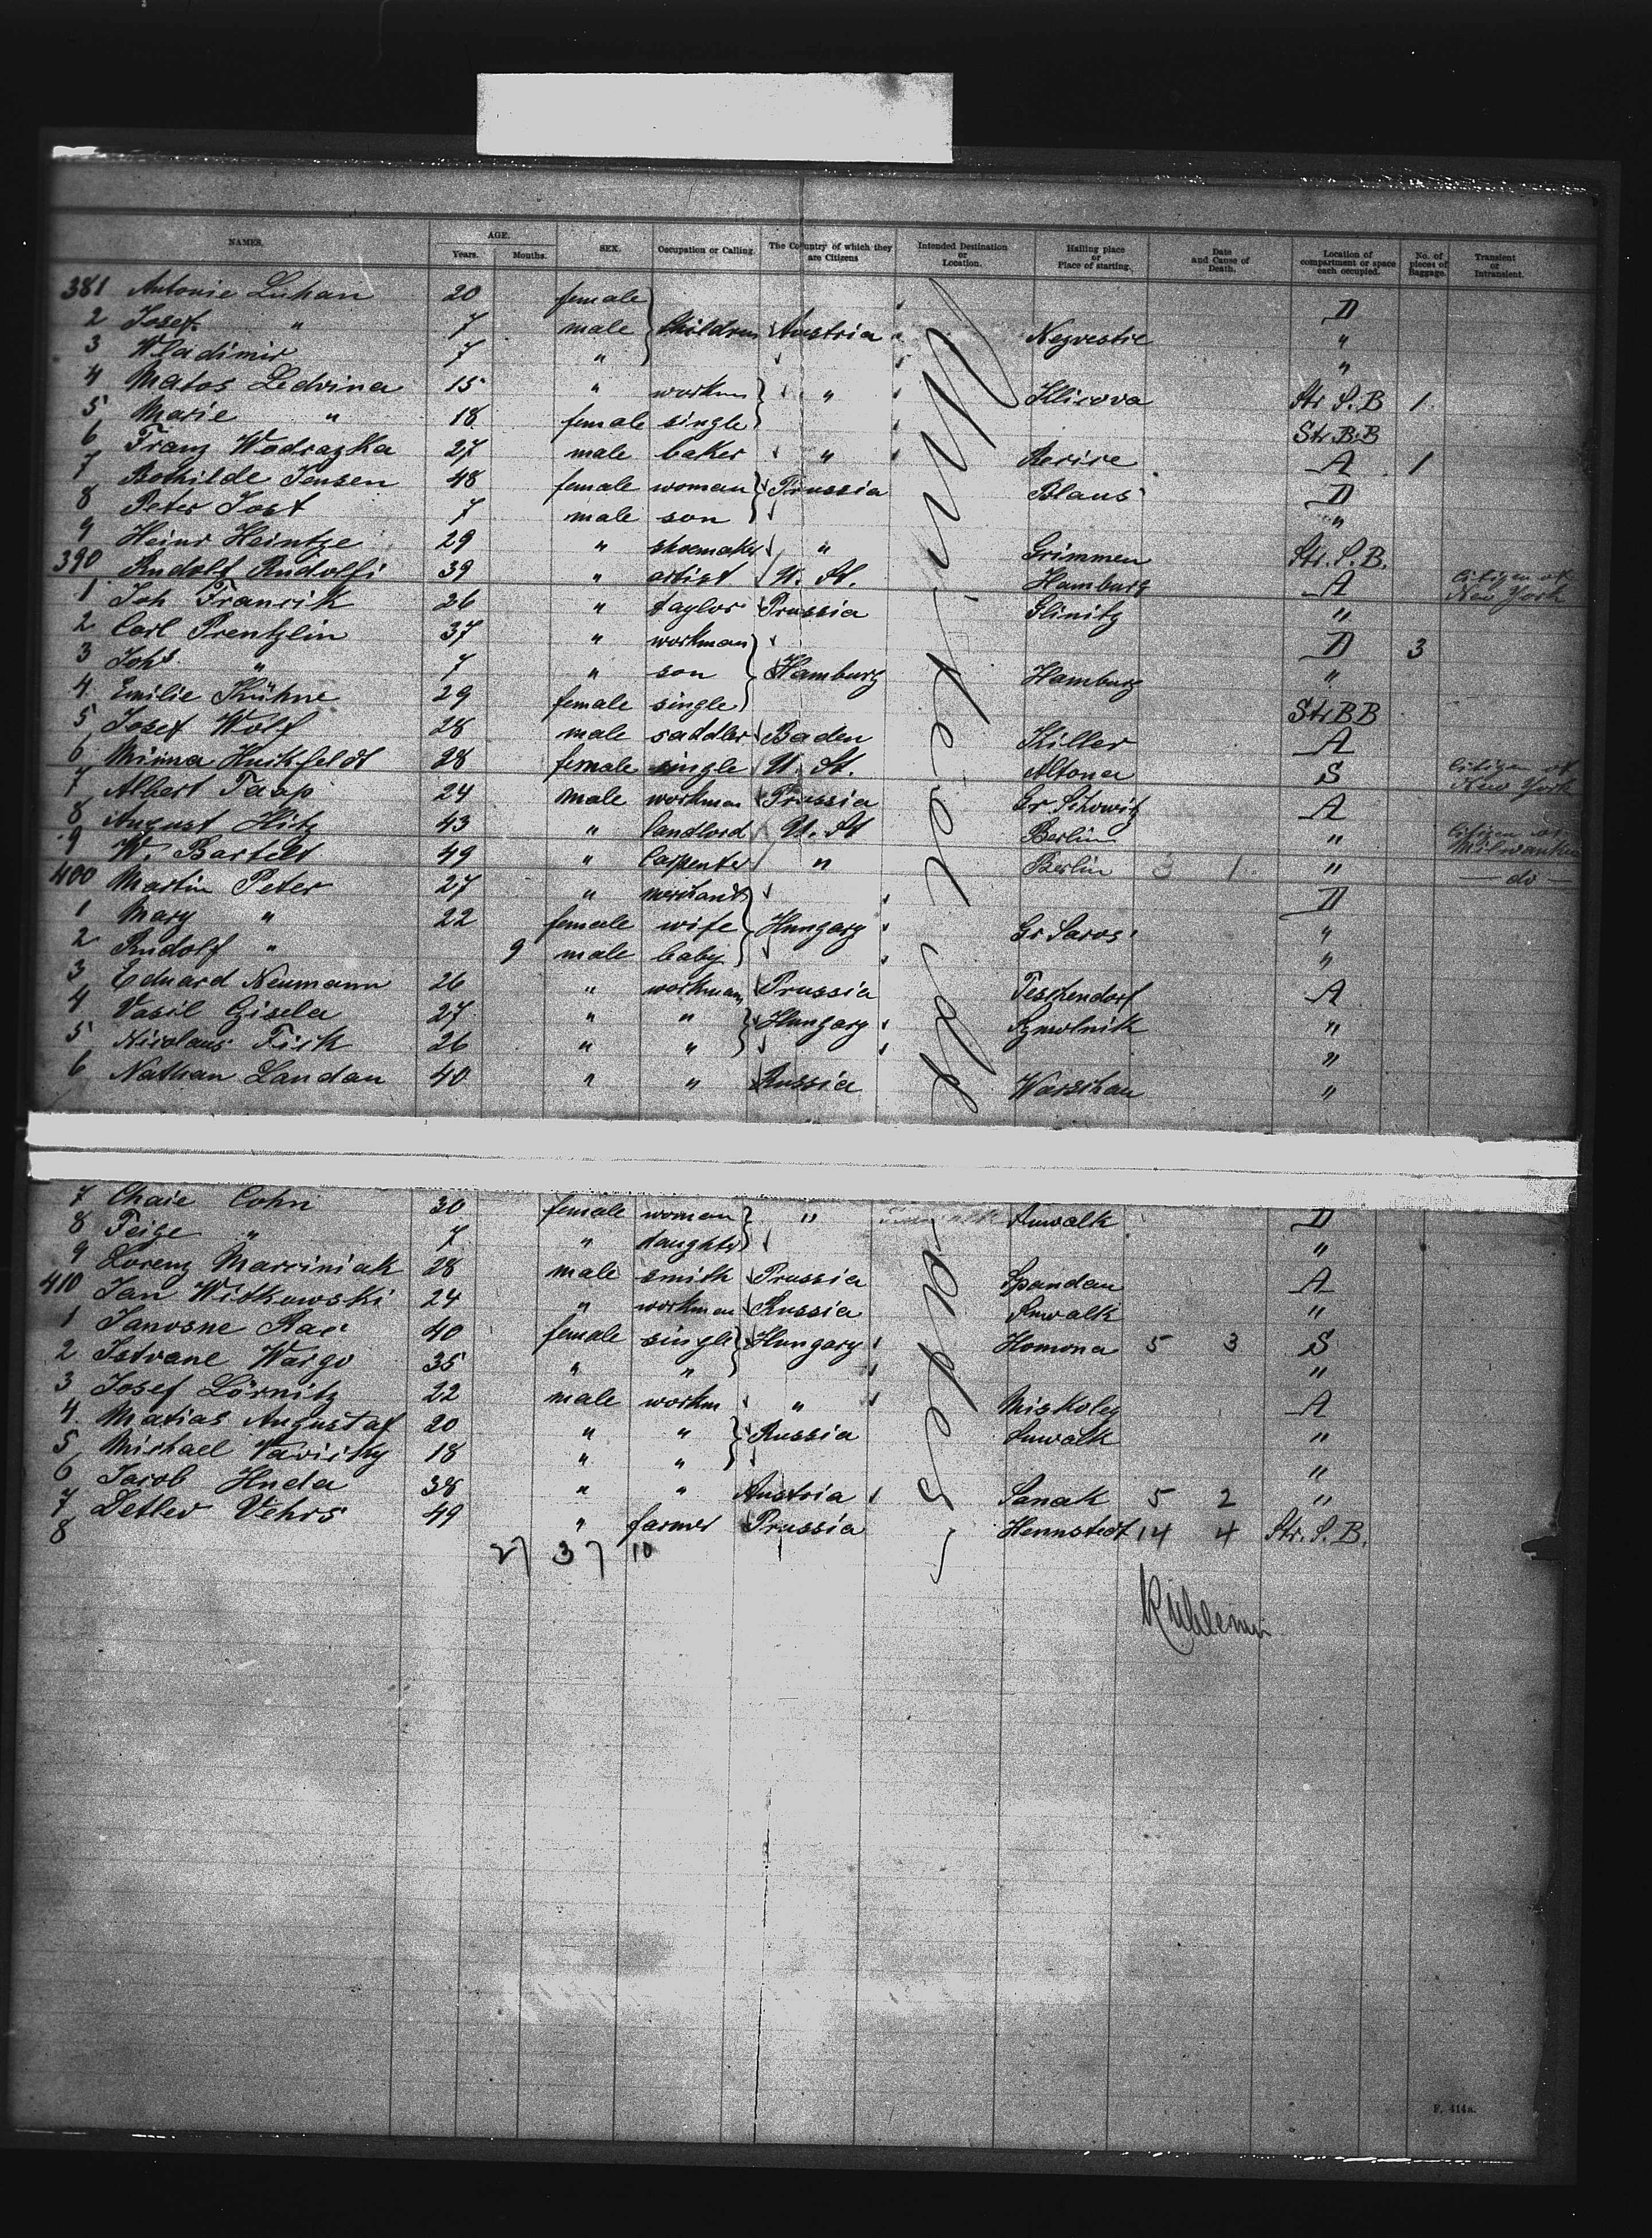 NAMES. AGE. Years. Months. SEX. Occupation or Calling. The Country of which they are Citizens Intended Destination or Location. Hailing place or Place of starting. Date and Cause of Death. Location of compartment or space each occupied. No. of pieces of Baggage. Transient or Intransient.
381 Antonie Luhan 20 female D
2 Josef " 7 male Children Austria "
3 Wladimir 7 " "
4 Matos Ledvina 15 " workm " Str S.B 1
5 Marie " 18 female single Str. B.B
6 Franz Wodrazka 27 male baker " A 1
7 Bothilde Jensen 48 female woman Prussia Blans D
8 Peter Jost 7 male son "
9 Heinr Heintze 29 " shoemaker " Grimmen Str. S.B.
390 Rudolf Rudolfi 39 " artist U. St. Hamburg A citizen of New York
1 Joh Francik 26 " taylor Prussia Glinitz "
2 Carl Prentzlin 37 " workman D 3
3 Johs " 7 " son Hamburg Hamburg "
4 Emilie Kühne 29 female single Str BB
5 Josef Wolf 28 male saddler Baden Killer A
6 Minna Huckfeldt 28 female single U. St. Altona S citizen of New York
7 Albert Taap 24 male workman Prussia A
8 August Hitz 43 " landlord U. St Berlin " citizen of Milwaukee
9 W. Bartelt 49 " Carpenter " Berlin 3 1 " — do —
400 Martin Peter 27 " merchant D
1 Mary " 22 female wife Hungary Gr Saros "
2 Rudolf " 9 male baby "
3 Eduard Neumann 26 " workman Prussia Teschendorf A
4 Vasil Gisela 27 " " Hungary Szmolnik "
5 Nicolaus Fick 26 " " "
6 Nathan Landau 40 " " Russia Warschau "
7 Chaie Cohn 30 female woman " Suwalk D
8 Feige " 7 " daughter "
9 Lorenz Marciniak 28 male smith Prussia Spandau A
410 Jan Witkowski 24 " workman Russia Suwalk "
1 Janosne Rac 40 female single Hungary Homona 5 3 S
2 Istvane Wargo 35 " " "
3 Josef Lörnitz 22 male workm " Miskolcz A
4 Matias Augustaf 20 " " Russia Suwalk "
5 Michael 18 " " "
6 Jacob Huda 38 " " Austria Sanak 5 2 "
7 Detlev Vehrs 49 " farmer Prussia Hennstedt 14 4 Str. S.B.
8
27 37 10
F. 414a.